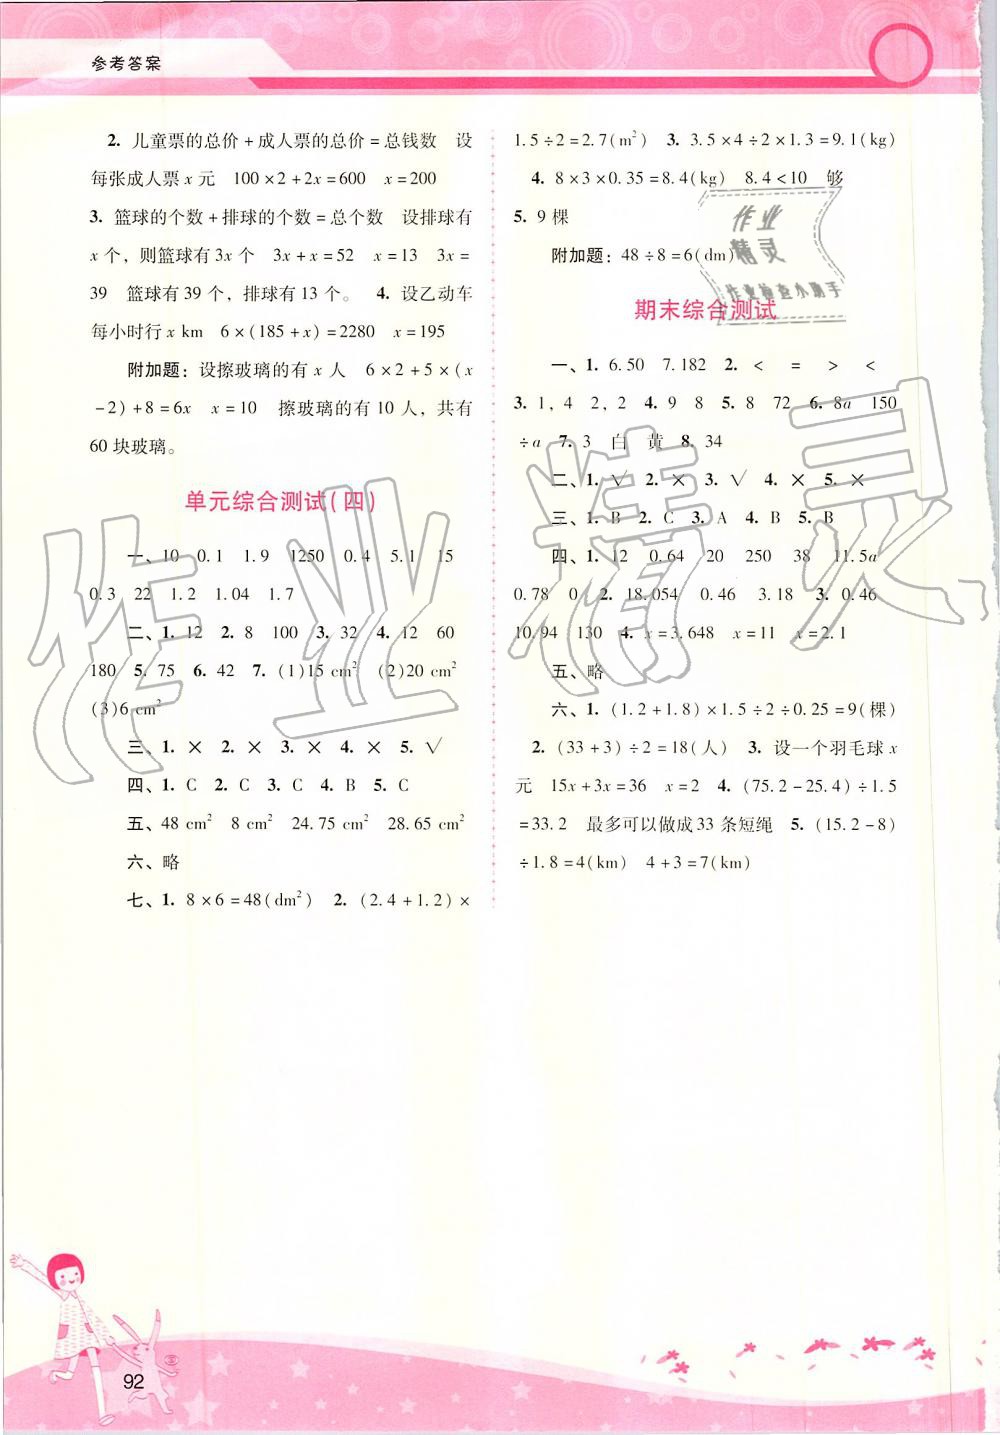 参考答案
2. 儿童票的总价+成人票的总价=总钱数 设
每张成人票x元 100×2+2x=600 x=200
3. 篮球的个数+排球的个数=总个数 设排球有
x个，则篮球有3x个 3x+x=52 x=13 3x=
39 篮球有39个，排球有13个。 4. 设乙动车
每小时行x km 6×(185+x)=2280 x=195
附加题：设擦玻璃的有x人 6×2+5×(x
-2)+8=6x x=10 擦玻璃的有10人，共有
60块玻璃。
单元综合测试(四)
一、10 0.1 1.9 1250 0.4 5.1 15
0.3 22 1.2 1.04 1.7
二、1. 12 2. 8 100 3. 32 4. 12 60
180 5. 75 6. 42 7. (1)15 cm² (2)20 cm²
(3)6 cm²
三、1. × 2. × 3. × 4. × 5. √
四、1. C 2. C 3. C 4. B 5. C
五、48 cm² 8 cm² 24.75 cm² 28.65 cm²
六、略
七、1. 8×6=48(dm²) 2. (2.4+1.2)×
1.5÷2=2.7(m²) 3. 3.5×4÷2×1.3=9.1(kg)
4. 8×3×0.35=8.4(kg) 8.4<10 够
5. 9棵
附加题：48÷8=6(dm)
期末综合测试
一、1. 6.50 7.182 2. < = > <
3. 1，4 2，2 4. 9 8 5. 8 72 6. 8a 150
÷a 7. 3 白 黄 8. 34
二、1. √ 2. × 3. √ 4. × 5. ×
三、1. B 2. C 3. A 4. B 5. B
四、1. 12 0.64 20 250 38 11.5a
0.78 0 2. 18.054 0.46 3.18 3. 0.46
10.94 130 4. x=3.648 x=11 x=2.1
五、略
六、1. (1.2+1.8)×1.5÷2÷0.25=9(棵)
2. (33+3)÷2=18(人) 3. 设一个羽毛球x
元 15x+3x=36 x=2 4. (75.2-25.4)÷1.5
=33.2 最多可以做成33条短绳 5. (15.2-8)
÷1.8=4(km) 4+3=7(km)
作业
精灵
作业检查小助手
作业精灵
92